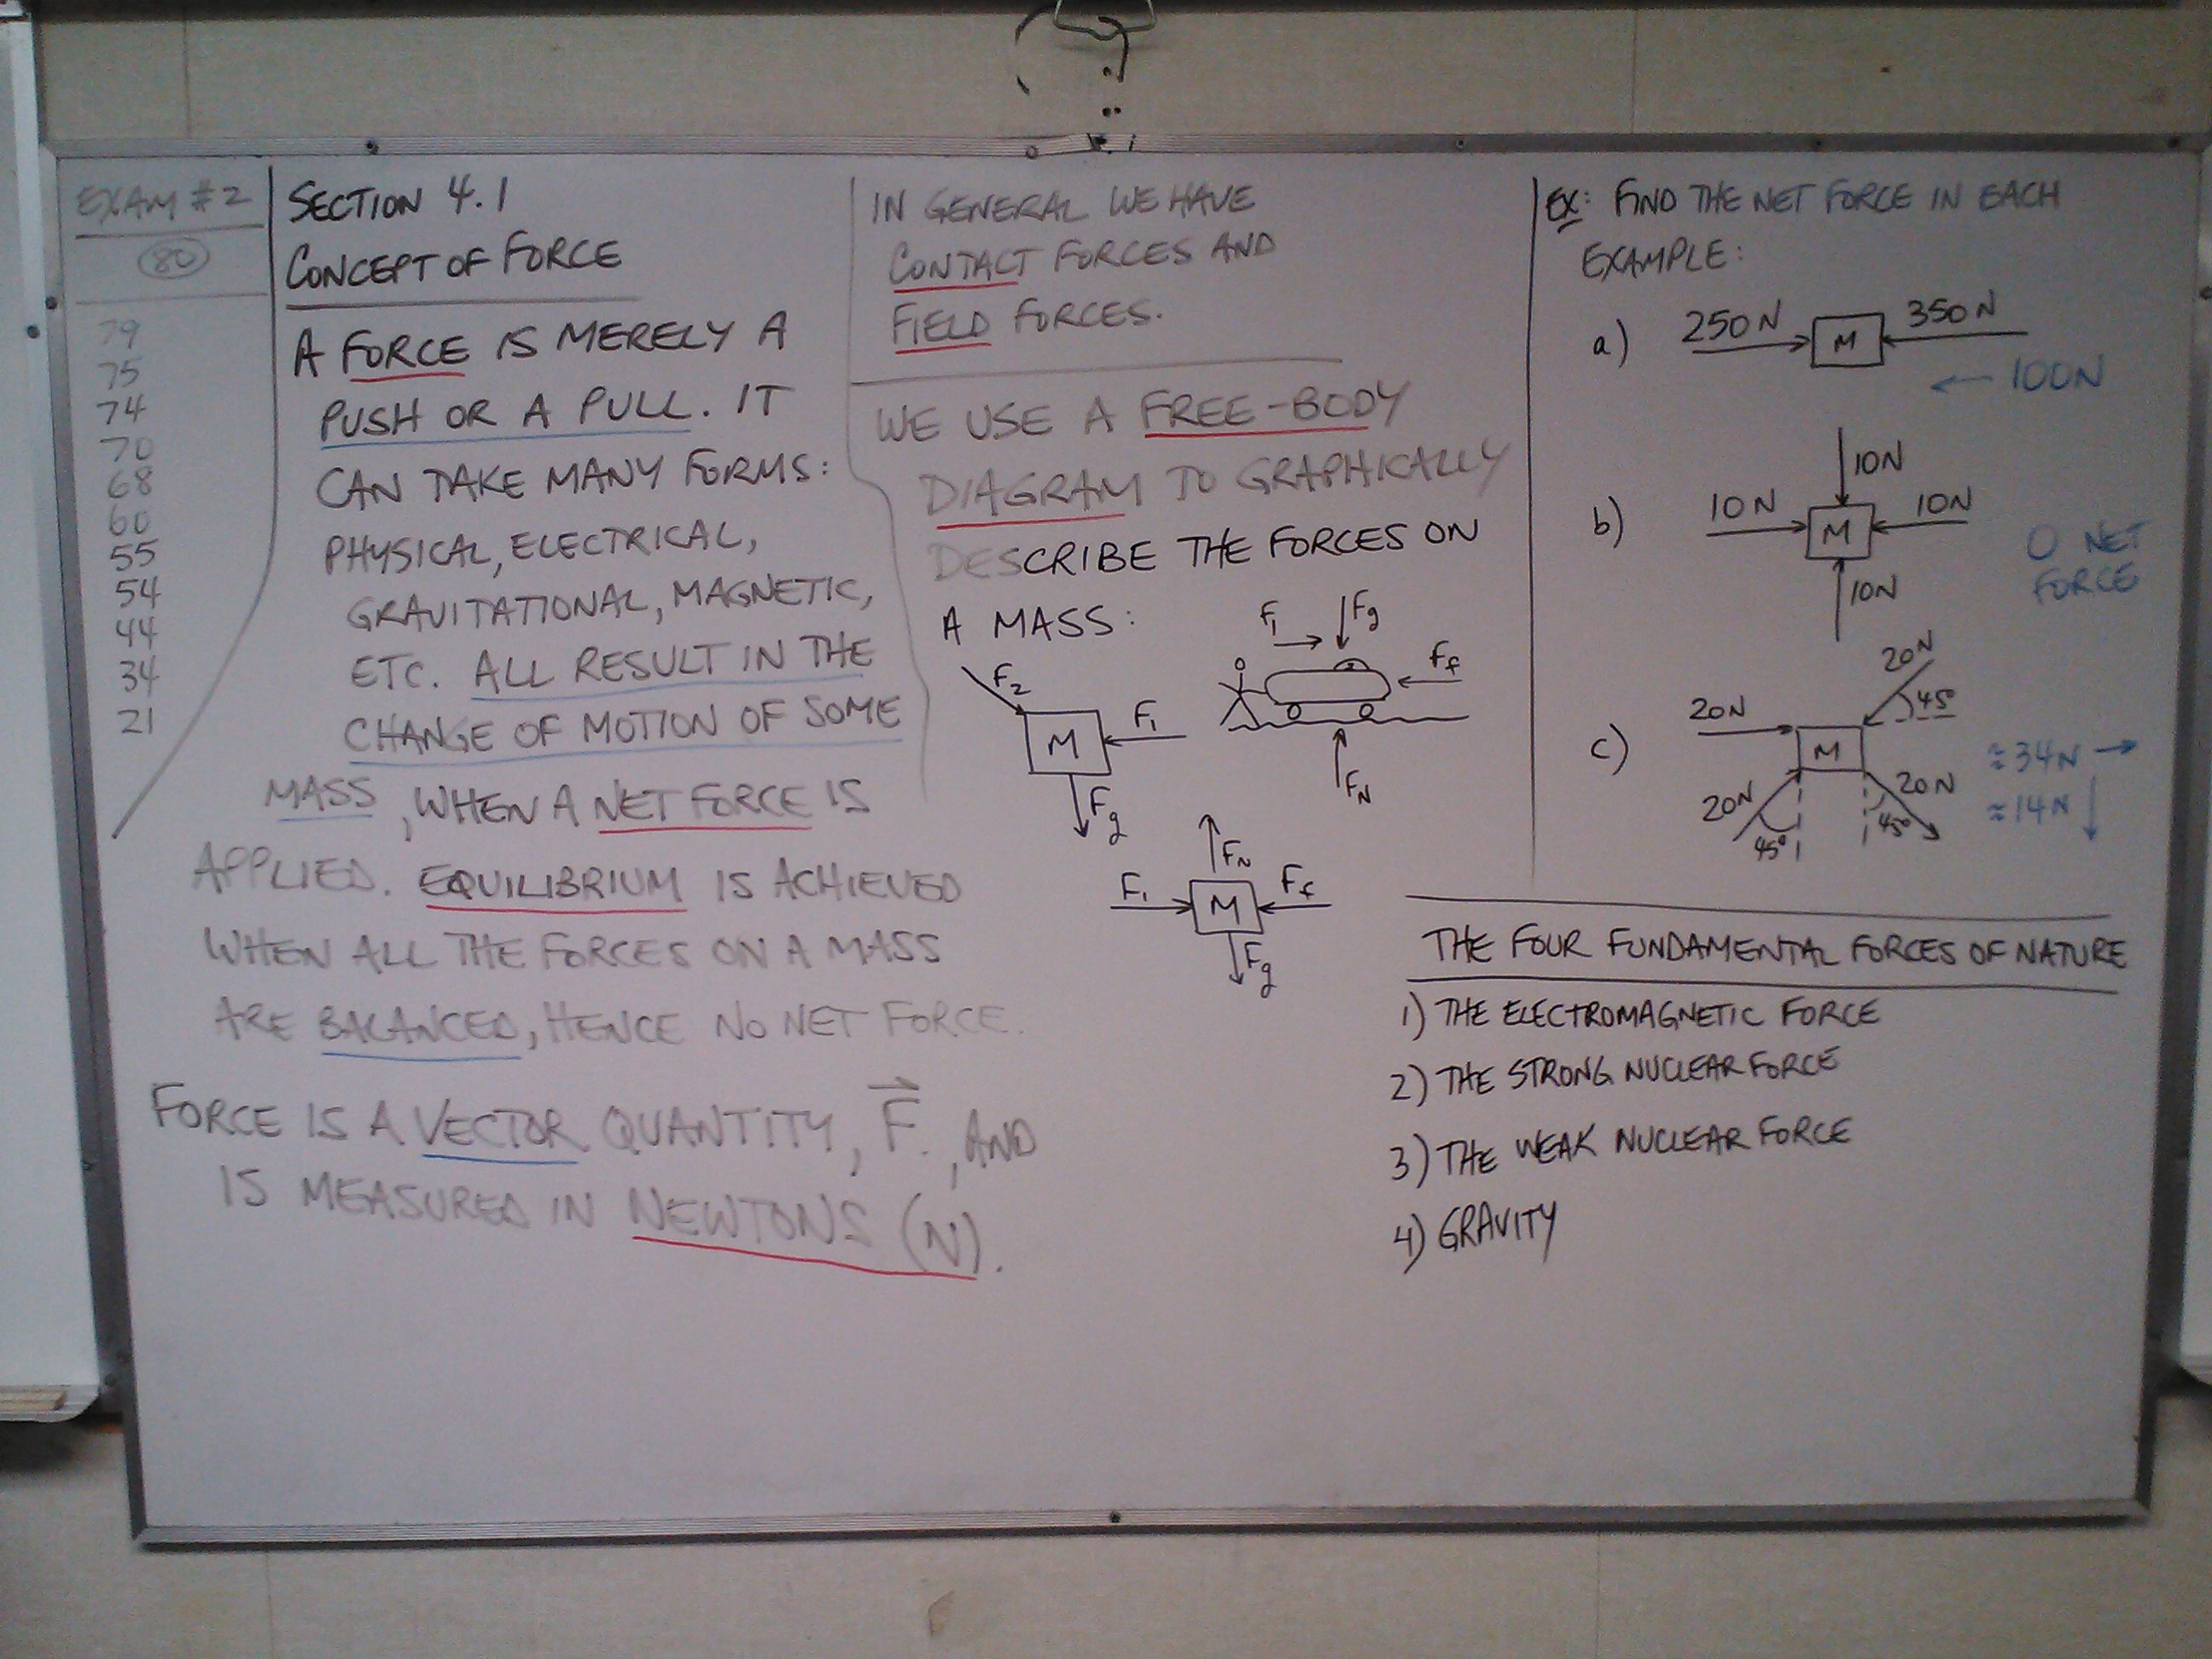 EXAM #2
80
79
75
74
70
68
60
55
54
44
34
21
SECTION 4.1
CONCEPT OF FORCE
A FORCE IS MERELY A
PUSH OR A PULL. IT
CAN TAKE MANY FORMS:
PHYSICAL, ELECTRICAL,
GRAVITATIONAL, MAGNETIC,
ETC. ALL RESULT IN THE
CHANGE OF MOTION OF SOME
MASS, WHEN A NET FORCE IS
APPLIED. EQUILIBRIUM IS ACHIEVED
WHEN ALL THE FORCES ON A MASS
ARE BALANCED, HENCE NO NET FORCE.
FORCE IS A VECTOR QUANTITY, F⃗, AND
IS MEASURED IN NEWTONS (N).
IN GENERAL WE HAVE
CONTACT FORCES AND
FIELD FORCES.
WE USE A FREE-BODY
DIAGRAM TO GRAPHICALLY
DESCRIBE THE FORCES ON
A MASS:
F2
M
F1
Fg
F1
Fg
Ff
FN
FN
F1
M
Ff
Fg
EX: FIND THE NET FORCE IN EACH
EXAMPLE:
a) 250N M 350N
← 100N
b) 10N
10N M 10N
10N
0 NET
FORCE
c) 20N
45°
20N
M
20N
45°
20N
45°
≈34N →
≈14N ↓
THE FOUR FUNDAMENTAL FORCES OF NATURE
1) THE ELECTROMAGNETIC FORCE
2) THE STRONG NUCLEAR FORCE
3) THE WEAK NUCLEAR FORCE
4) GRAVITY